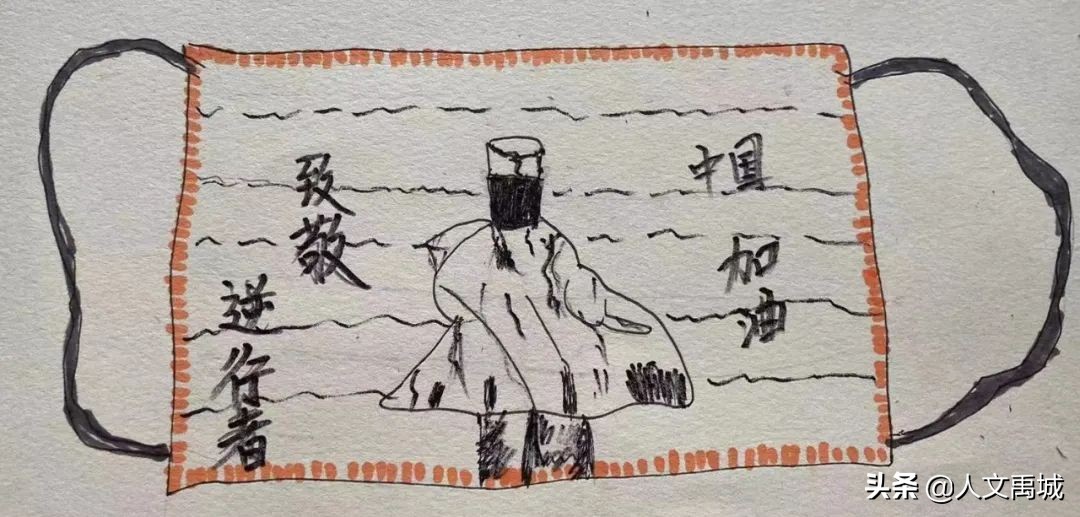 致敬
逆行者
中国
加油
头条 @人文禹城